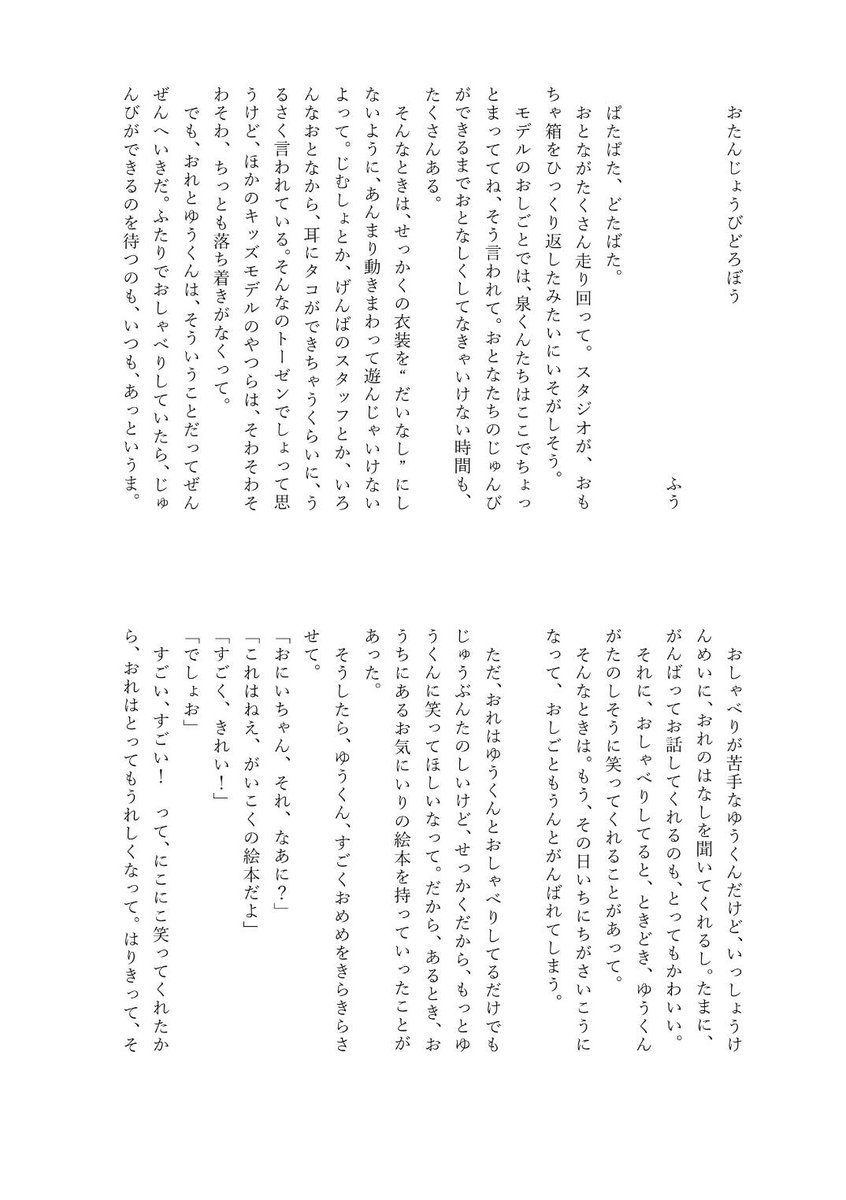 おたんじょうびどろぼう
ふう
ぱたぱた、どたばた。
おとながたくさん走り回って。スタジオが、おも
ちゃ箱をひっくり返したみたいにいそがしそう。
モデルのおしごとでは、泉くんたちはここでちょっ
とまっててね、そう言われて。おとなたちのじゅんび
ができるまでおとなしくしてなきゃいけない時間も、
たくさんある。
そんなときは、せっかくの衣装を“だいなし”にし
ないように、あんまり動きまわって遊んじゃいけない
よって。じむしょとか、げんばのスタッフとか、いろ
んなおとなから、耳にタコができちゃうくらいに、う
るさく言われている。そんなのトーゼンでしょって思
うけど、ほかのキッズモデルのやつらは、そわそわそ
わそわ、ちっとも落ち着きがなくって。
でも、おれとゆうくんは、そういうことだってぜん
ぜんへいきだ。ふたりでおしゃべりしていたら、じゅ
んびができるのを待つのも、いつも、あっというま。
おしゃべりが苦手なゆうくんだけど、いっしょうけ
んめいに、おれのはなしを聞いてくれるし。たまに、
がんばってお話してくれるのも、とってもかわいい。
それに、おしゃべりしてると、ときどき、ゆうくん
がたのしそうに笑ってくれることがあって。
そんなときは。もう、その日いちにちがさいこうに
なって、おしごともうんとがんばれてしまう。
ただ、おれはゆうくんとおしゃべりしてるだけでも
じゅうぶんたのしいけど、せっかくだから、もっとゆ
うくんに笑ってほしいなって。だから、あるとき、お
うちにあるお気にいりの絵本を持っていったことが
あった。
そうしたら、ゆうくん、すごくおめめをきらきらさ
せて。
「おにいちゃん、それ、なあに？」
「これはねえ、がいこくの絵本だよ」
「すごく、きれい！」
「でしょお」
すごい、すごい！　って、にこにこ笑ってくれたか
ら、おれはとってもうれしくなって。はりきって、そ